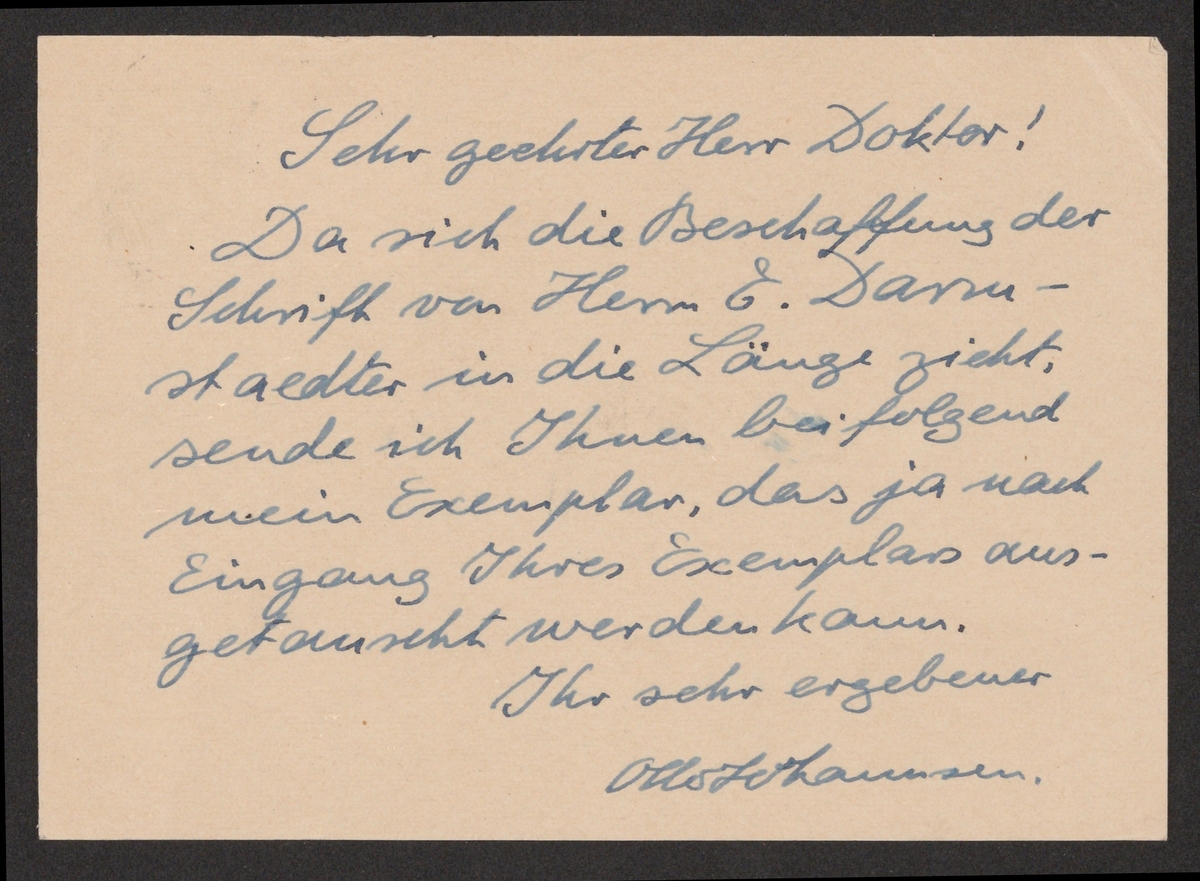 Sehr geehrter Herr Doktor!
Da sich die Beschaffung der
Schrift von Herrn E. Darm-
staedter in die Länge zieht,
sende ich Ihnen beifolgend
mein Exemplar, das ja nach
Eingang Ihres Exemplars aus-
getauscht werden kann.
Ihr sehr ergebener
Otto Johannsen.